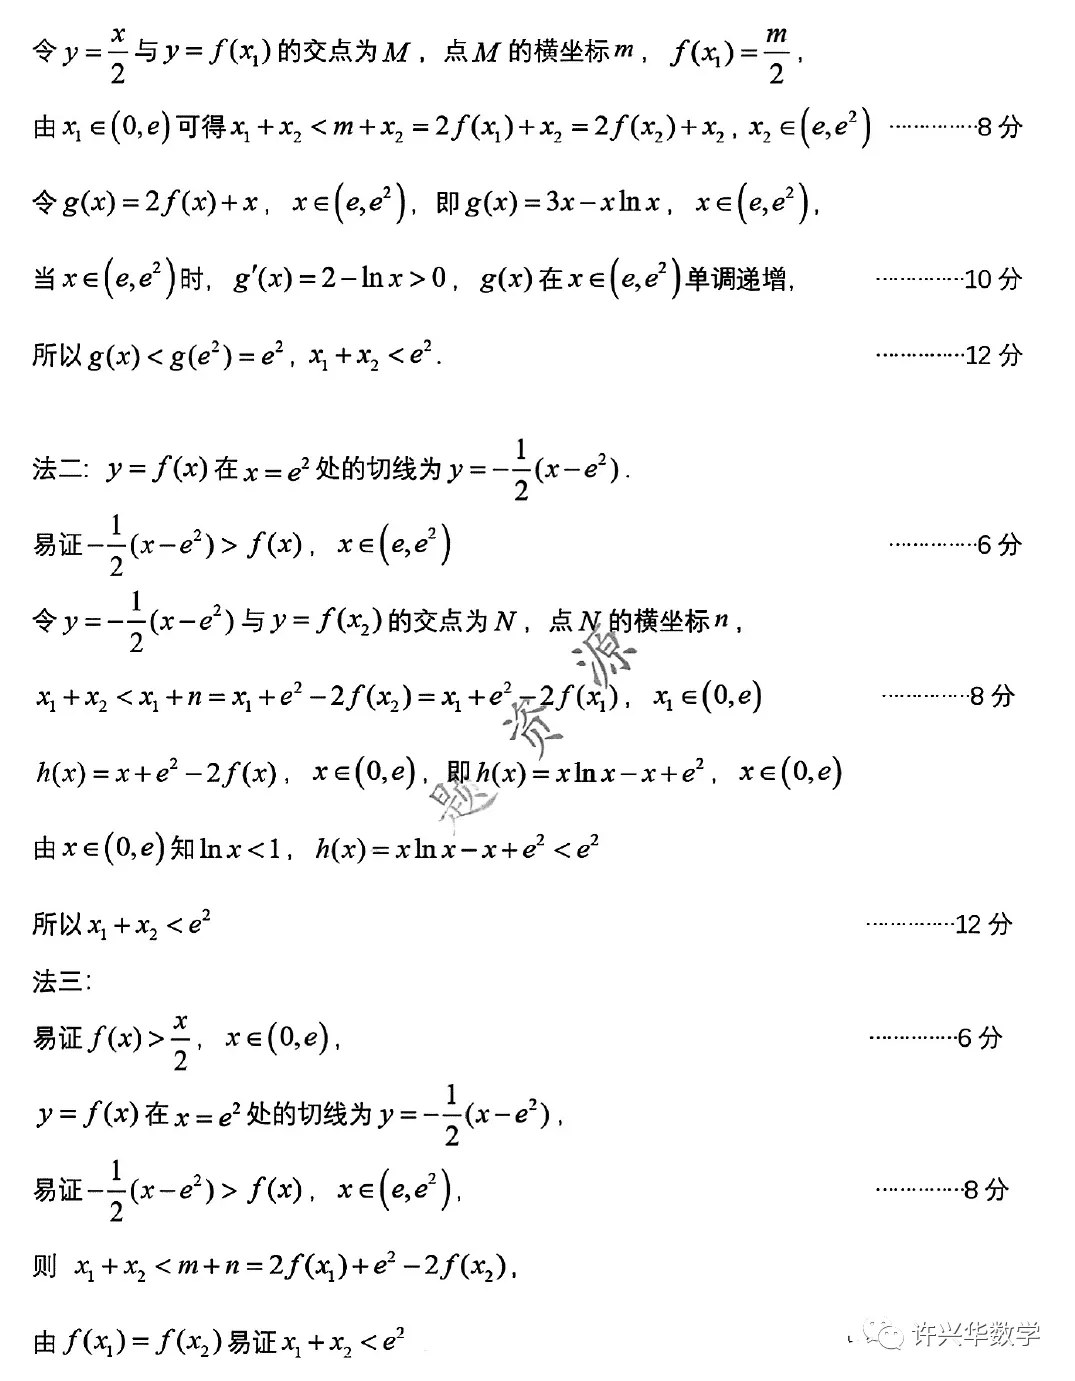 令 y = x/2 与 y = f(x₁) 的交点为 M ，点 M 的横坐标 m ， f(x₁) = m/2 ，
由 x₁ ∈ (0,e) 可得 x₁ + x₂ < m + x₂ = 2f(x₁) + x₂ = 2f(x₂) + x₂ ，x₂ ∈ (e,e²) ……………8 分
令 g(x) = 2f(x) + x ， x ∈ (e,e²)，即 g(x) = 3x − x ln x ， x ∈ (e,e²)，
当 x ∈ (e,e²) 时， g′(x) = 2 − ln x > 0 ， g(x) 在 x ∈ (e,e²) 单调递增， ……………10 分
所以 g(x) < g(e²) = e² ，x₁ + x₂ < e² . ……………12 分
法二: y = f(x) 在 x = e² 处的切线为 y = −1/2(x − e²) .
易证 −1/2(x − e²) > f(x) ， x ∈ (e,e²) ……………6 分
令 y = −1/2(x − e²) 与 y = f(x₂) 的交点为 N ，点 N 的横坐标 n ，
x₁ + x₂ < x₁ + n = x₁ + e² − 2f(x₂) = x₁ + e² − 2f(x₁) ， x₁ ∈ (0,e) ……………8 分
h(x) = x + e² − 2f(x) ， x ∈ (0,e)，即 h(x) = x ln x − x + e² ， x ∈ (0,e)
由 x ∈ (0,e) 知 ln x < 1 ， h(x) = x ln x − x + e² < e²
所以 x₁ + x₂ < e² ……………12 分
法三:
易证 f(x) > x/2 ， x ∈ (0,e) ， ……………6 分
y = f(x) 在 x = e² 处的切线为 y = −1/2(x − e²) ，
易证 −1/2(x − e²) > f(x) ， x ∈ (e,e²) ， ……………8 分
则 x₁ + x₂ < m + n = 2f(x₁) + e² − 2f(x₂) ，
由 f(x₁) = f(x₂) 易证 x₁ + x₂ < e²
题资源
许兴华数学